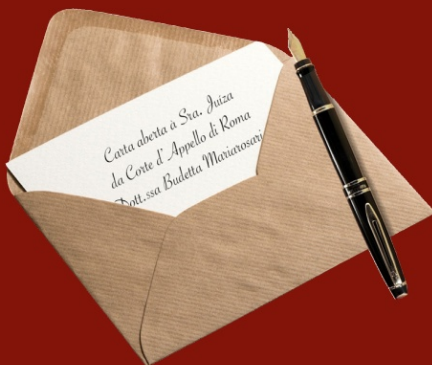 Carta aberta à Sra. Juiza
da Corte d' Appello di Roma
Dott.ssa Budetta Mariarosari